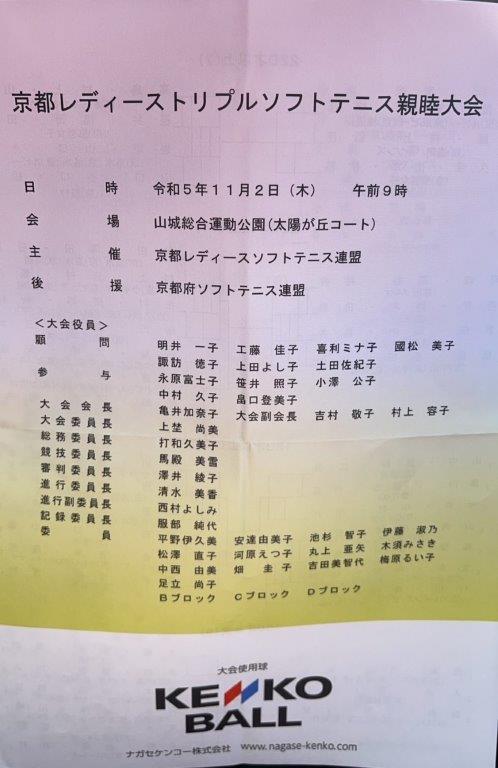 京都レディーストリプルソフトテニス親睦大会
日時 令和5年11月2日(木) 午前9時
会場 山城総合運動公園(太陽が丘コート)
主催 京都レディースソフトテニス連盟
後援 京都府ソフトテニス連盟
<大会役員>
顧問 明井 一子 工藤 佳子 喜利ミナ子 國松 美子
諏訪 徳子 上田よし子 土田佐紀子
参与 永原富士子 笹井 照子 小澤 公子
中村 久子 畠口登美子
大会会長 亀井加奈子 大会副会長 吉村 敬子 村上 容子
大会委員長 上埜 尚美
総務委員長 打和久美子
競技委員長 馬殿 美雪
審判委員長 澤井 綾子
進行委員長 清水 美香
進行副委員長 西村よしみ
記録委員長 服部 純代
委員 平野伊久美 安達由美子 池杉 智子 伊藤 淑乃
松澤 直子 河原えつ子 丸上 亜矢 木須みさき
中西 由美 畑 圭子 吉田美智代 梅原るい子
足立 尚子
Bブロック Cブロック Dブロック
大会使用球
KENKO
BALL
ナガセケンコー株式会社 www.nagase-kenko.com